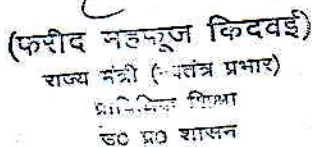 (फरीद महफूज किदवई)
राज्य मंत्री (स्वतंत्र प्रभार)
प्राविधिक शिक्षा
उ० प्र० शासन